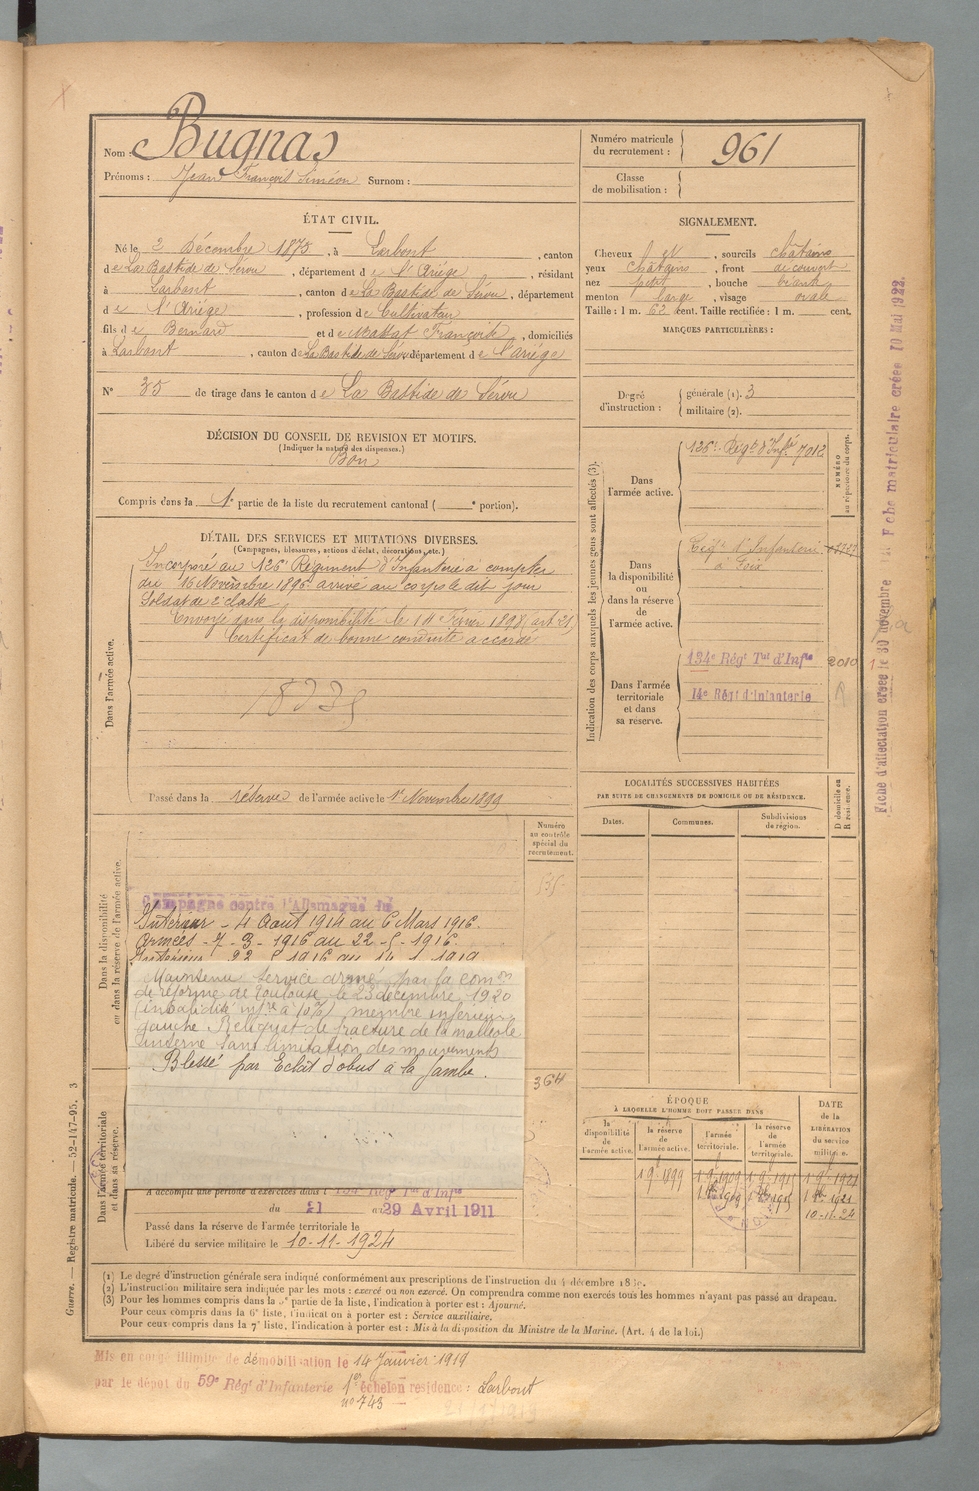 Nom : Bugnas
Prénoms : Jean François Siméon Surnom :
Numéro matricule du recrutement : 961
Classe de mobilisation :
ÉTAT CIVIL.
Né le 2 Décembre 1875, à Larbont, canton
de La Bastide de Sérou, département de l'Ariège, résidant
à Larbont, canton de La Bastide de Sérou, département
de l'Ariège, profession de Cultivateur
fils de Bernard et de Françoise, domiciliés
à Larbont, canton de La Bastide de Sérou département de l'ariège
N° 35 de tirage dans le canton de La Bastide de Sérou
SIGNALEMENT.
Cheveux et, sourcils châtains
yeux châtains, front découvert
nez petit, bouche
menton large, visage ovale
Taille : 1 m. 62 cent. Taille rectifiée : 1 m. cent.
MARQUES PARTICULIÈRES :
Degré d'instruction : générale (1). 3
militaire (2).
DÉCISION DU CONSEIL DE REVISION ET MOTIFS.
(Indiquer la nature des dispenses.)
Bon
Compris dans la 1e partie de la liste du recrutement cantonal ( e portion).
DÉTAIL DES SERVICES ET MUTATIONS DIVERSES.
(Campagnes, blessures, actions d'éclat, décorations, etc.)
Dans l'armée active.
Incorporé au 126e Régiment d'Infanterie à compter
du 16 Novembre 1896 arrivé au corps le dit jour
Soldat de 2e classe
Envoyé dans la disponibilité le 14 Février 1898, art 21)
Certificat de bonne conduite accordé
Passé dans la réserve de l'armée active le 1er Novembre 1899
Indication des corps auxquels les jeunes gens sont affectés (3).
Dans l'armée active.
126e Régt d'Infie 7012
NUMÉRO au répertoire du corps.
Dans la disponibilité ou dans la réserve de l'armée active.
d'Infanterie
à Foix
Dans l'armée territoriale et dans sa réserve.
134e Régt Tal d'Infie 2010
14e Régt d'Infanterie
LOCALITÉS SUCCESSIVES HABITÉES
PAR SUITE DE CHANGEMENTS DE DOMICILE OU DE RÉSIDENCE.
Dates. Communes. Subdivisions de région.
D domicile ou R résidence.
Numéro au contrôle spécial du recrutement.
Dans la disponibilité ou dans la réserve de l'armée active.
Campagne contre l'Allemagne du
Intérieur - 4 Août 1914 au 6 Mars 1916.
Armées - 7 - 3 - 1916 au 22 - 5 - 1916.
Intérieur 22 5 1916 au 14 1 1919
Maintenu service armé par la comon
de réforme de Toulouse le 23 décembre 1920
(invalidité infre à 10%) membre inférieur
gauche Reliquat de fracture de la malléole
interne sans limitation des mouvements
Blessé par Eclat d'obus à la Jambe.
364
Dans l'armée territoriale et dans sa réserve.
A accompli une période d'exercices dans l 134e Régt Tal d'Infie
du 21 au 29 Avril 1911
Passé dans la réserve de l'armée territoriale le
Libéré du service militaire le 10-11-1924
ÉPOQUE
À LAQUELLE L'HOMME DOIT PASSER DANS
la disponibilité de l'armée active.
la réserve de l'armée active.
l'armée territoriale.
la réserve de l'armée territoriale.
DATE de la LIBÉRATION du service militaire.
10-11-24
(1) Le degré d'instruction générale sera indiqué conformément aux prescriptions de l'instruction du 4 décembre
(2) L'instruction militaire sera indiquée par les mots : exercé ou non exercé. On comprendra comme non exercés tous les hommes n'ayant pas passé au drapeau.
(3) Pour les hommes compris dans la 5e partie de la liste, l'indication à porter est : Ajourné.
Pour ceux compris dans la 6e liste, l'indication à porter est : Service auxiliaire.
Pour ceux compris dans la 7e liste, l'indication à porter est : Mis à la disposition du Ministre de la Marine. (Art. 4 de la loi.)
Mis en congé illimité de démobilisation le 14 Janvier 1919
par le dépôt du 59e Régt d'Infanterie 1er échelon residence : Larbont
no 743
Guerre. — Registre matricule. — 52-147-95. 3
Fiche d'affectation créée le 30 novembre
Fiche matriculaire créée 10 Mai 1922.